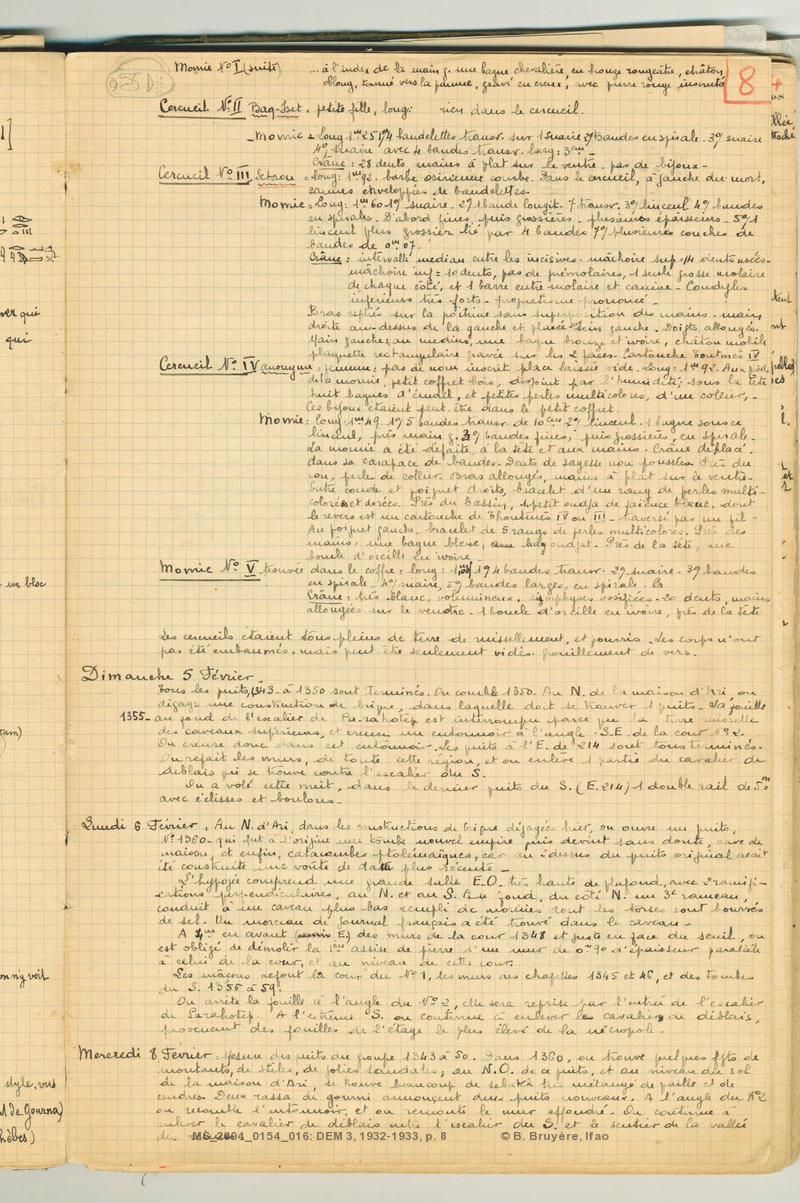 Momie N° I (suite) ... à l'index de la main g. une bague chevalière, en bronze rougeâtre, chaton
oblong, tourné vers la paume, gravé en creux, avec pierre rouge incrustée
8
Cercueil N° II Baq-Iset, petite fille, long: rien dans le cercueil.
Momie = Long 1m25 1°/ 4 bandelettes transv. sur 1 suaire 2°/ Bandes en spirale. 3°/ suaire
4°/ suaire avec 4 bandes transv. larg: 3cm
Crâne: 28 dents, mains à plat sur le ventre. pas de bijoux.
Cercueil N° III Setaou = long: 1m92. barbe osirienne courbe. Dans le cercueil, à gauche du mort,
cannes enveloppées de bandelettes.
Momie = Long: 1m60 1°/ suaire. 2°/ 1 bande longit. 7 transv. 3°/ linceul 4°/ bandes
en spirales. D'abord fines, puis grossières. plusieurs épaisseurs. 5°/ 1
linceul plus grossier lié par 4 bandes 7°/ plusieurs couches de
bandes de 0m07.
Crâne: intervalle médian entre les incisives. mâchoire sup = 14 dents
mâchoire inf = 10 dents, pas de prémolaires, 1 seule grosse molaire
de chaque côté, et 1 barre entre molaire et canine. Condyles
inférieurs très forts. prognatisme prononcé.
Bras repliés sur la poitrine sans superposition des mains. main
droite au-dessus de la gauche et placée sein gauche. Doigts allongés.
Main gauche: au medius, une bague bronze et ivoire, chaton mobile
plaquette rectangulaire gravée sur les 2 faces. Cartouche Toutmès IV
Cercueil N° IV anonyme: femme: pas de nom inscrit place laissée vide. Long: 1m92. Aux pieds
de la momie, petit coffret bois, disjoint par l'humidité; sous la tête
huit bagues d'émail, et petites perles multicolores, d'un collier,
Ces bijoux étaient peut-être dans le petit coffret.
Momie: long: 1m49 1°/ 5 bandes transv. de 10cm 2°/ linceul. 1 bague sous ce
linceul, près main g. 3°/ bandes fines, puis grossières, en spirale.
La momie a été défaite, à la tête et aux mains. Crâne déplacé.
dans sa carapace de bandes. Dents de sagesse non poussées. Près du
cou, perle de collier. Bras allongés, mains à plat sur le ventre.
Entre coude et poignet droits, bracelet d'un rang de perles multi-
colores et dorées. Près du bassin, 1 petit oudja de faïence bleue, dont
le revers est un cartouche de Thoutmès IV ou III. traversé par un fil.
Au poignet gauche, bracelet de 5 rangs de perles multicolores. Près des
mains, une bague bleue, oudjat. Près de la tête, une
boucle d'oreille en ivoire.
Momie N° V trouvée dans le coffre: long: 1°/ 4 bandes transv. 2°/ suaire. 3°/ bandes
en spirale. 4°/ suaire, 5°/ bandes larges, en spirale.
Crâne: très blanc, volumineux, symphyses ossifiées. 20 dents, mains
allongées sur le ventre. 1 boucle d'oreille en ivoire, près de la tête
Les cercueils étaient tous pleins de terre de ruissellement, et pourris. Les corps n'ont
pas été embaumés, mais peut-être seulement vidés. fouillement de vers.
Dimanche 5 Février.
Tous les puits, 1343 à 1350 sont terminés. On comble 1350. Au N. de la maison d'Ari, on
dégage une construction de brique, dans laquelle doit se trouver 1 puits. La fouille
1355- au fond de l'escalier de Pa-rahotep est interrompue parce que la terre
des caveaux supérieurs, et creuse un entonnoir à l'angle S.E. de la cour N°2.
On creuse donc dans cet entonnoir. Les puits à l'E. de 214 sont tous terminés.
On refait les murs, de toute cette région, et on enlève 1 partie du cavalier de
déblais qui se trouve contre l'escalier du S.
On a volé cette nuit, dans le dernier puits du S. (E. 214) 1 double rail de 5m
avec éclisses et boulons.
Lundi 6 Février: Au N. d'Ari, dans les constructions de brique dégagées hier, on ouvre un puits,
N° 1360 qui fut à l'origine une tombe nouvel empire puis devint sans doute, cave de
maison, et enfin, catacombes ptolémaïques, car au-dessus du puits original avait
été construite une voûte de date plus récente.
L'hypogée comprend une grande salle E-O. très haute de plafond, avec 2 ramifi-
cations perpendiculaires, au N. et au S. Au fond, du côté N. un 3e rameau,
conduit à un caveau plus bas rempli de momies dont les torses sont bourrés
de sel. Un morceau de journal français a été trouvé dans le caveau.
A 4m en avant (E) des murs de la cour 1348 et juste en face du seuil, on
est obligé de démolir la 1ère assise de pierre d'un mur de 0m90 d'épaisseur parallèle
à celui de la cour, et au niveau de cette cour.
Les maçons refont la cour du N° 1, les murs des chapelles 1345 et 46, et des tombes
du S. 1356 à 59.
On arrête la fouille à l'angle du N° 2, elle sera reprise par l'entrée de l'escalier
de Parahotep. A l'extrême S. on continue à enlever les cavaliers de déblais,
provenant des fouilles de l'étage le plus élevé de la nécropole.
Mercredi 8 Février: des puits du groupe 1343 à 50. Dans 1360, on trouve quelques fgts de
montants, de stèles, de jolies sandales; au N.O. de ce puits, et au niveau du sol
de la maison d'Ari, se trouve beaucoup de sebakh très mélangé de paille et de
cendres. Deux rassa de gourni annoncent deux puits nouveaux. A l'angle du N°2
on recomble l'entonnoir, et on remonte le mur effondré. On continue à
enlever le cavalier de déblais entre l'escalier du S. et le sentier de la vallée
des
MS_2004_0154_016: DEM 3, 1932-1933, p. 8 © B. Bruyère, Ifao